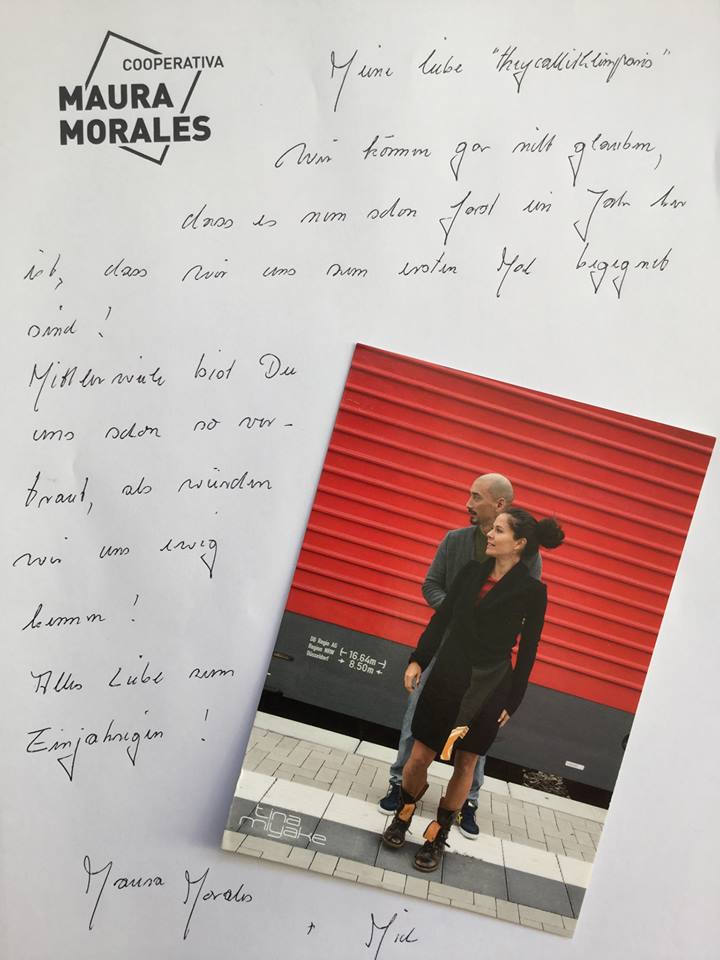 COOPERATIVA
MAURA
MORALES
Meine liebe "theycallitkleinparis"
Wir können gar nicht glauben,
dass es nun schon fast ein Jahr her
ist, dass wir uns zum ersten Mal begegnet
sind!
Mittlerweile bist Du
uns schon so ver-
traut, als würden
wir uns ewig
kennen!
Alles Liebe zum
Einjährigen!
DB Regio AG
Region NRW
Düsseldorf
16.64m
8.50m
tina
miyake
Maura Morales
+ Mich